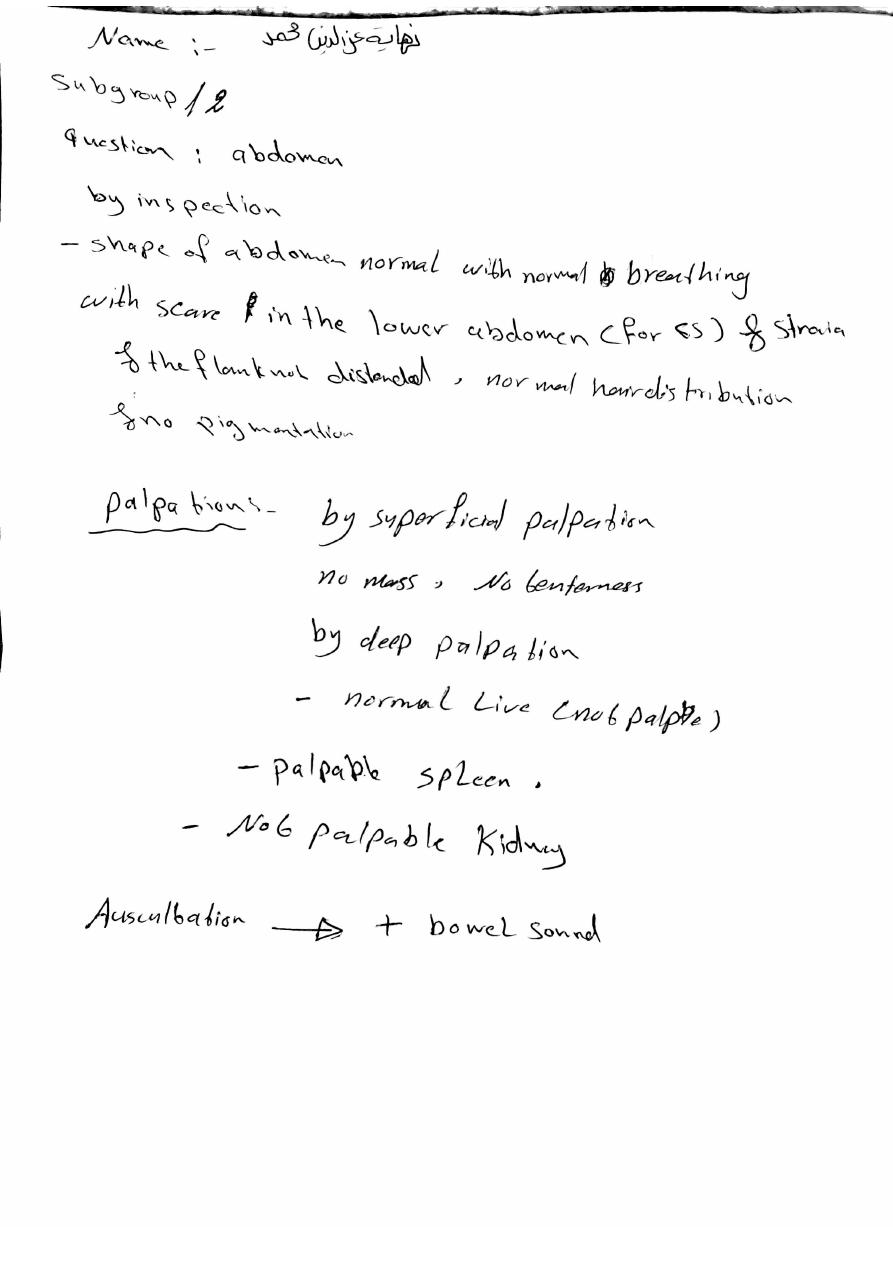 Name :- نهاية عز الدين محمد
Subgroup / 2
Question : abdomen
by inspection
- shape of abdomen normal with normal breathing
with scare in the lower abdomen (for CS) & straia
& the flank not distended , normal hair distribution
& no pigmentation
palpation:- by superficial palpation
no mass , No tenterness
by deep palpation
- normal Live (not palpble)
- palpable spleen .
- Not palpable Kidney
Auscultation → + bowel sound